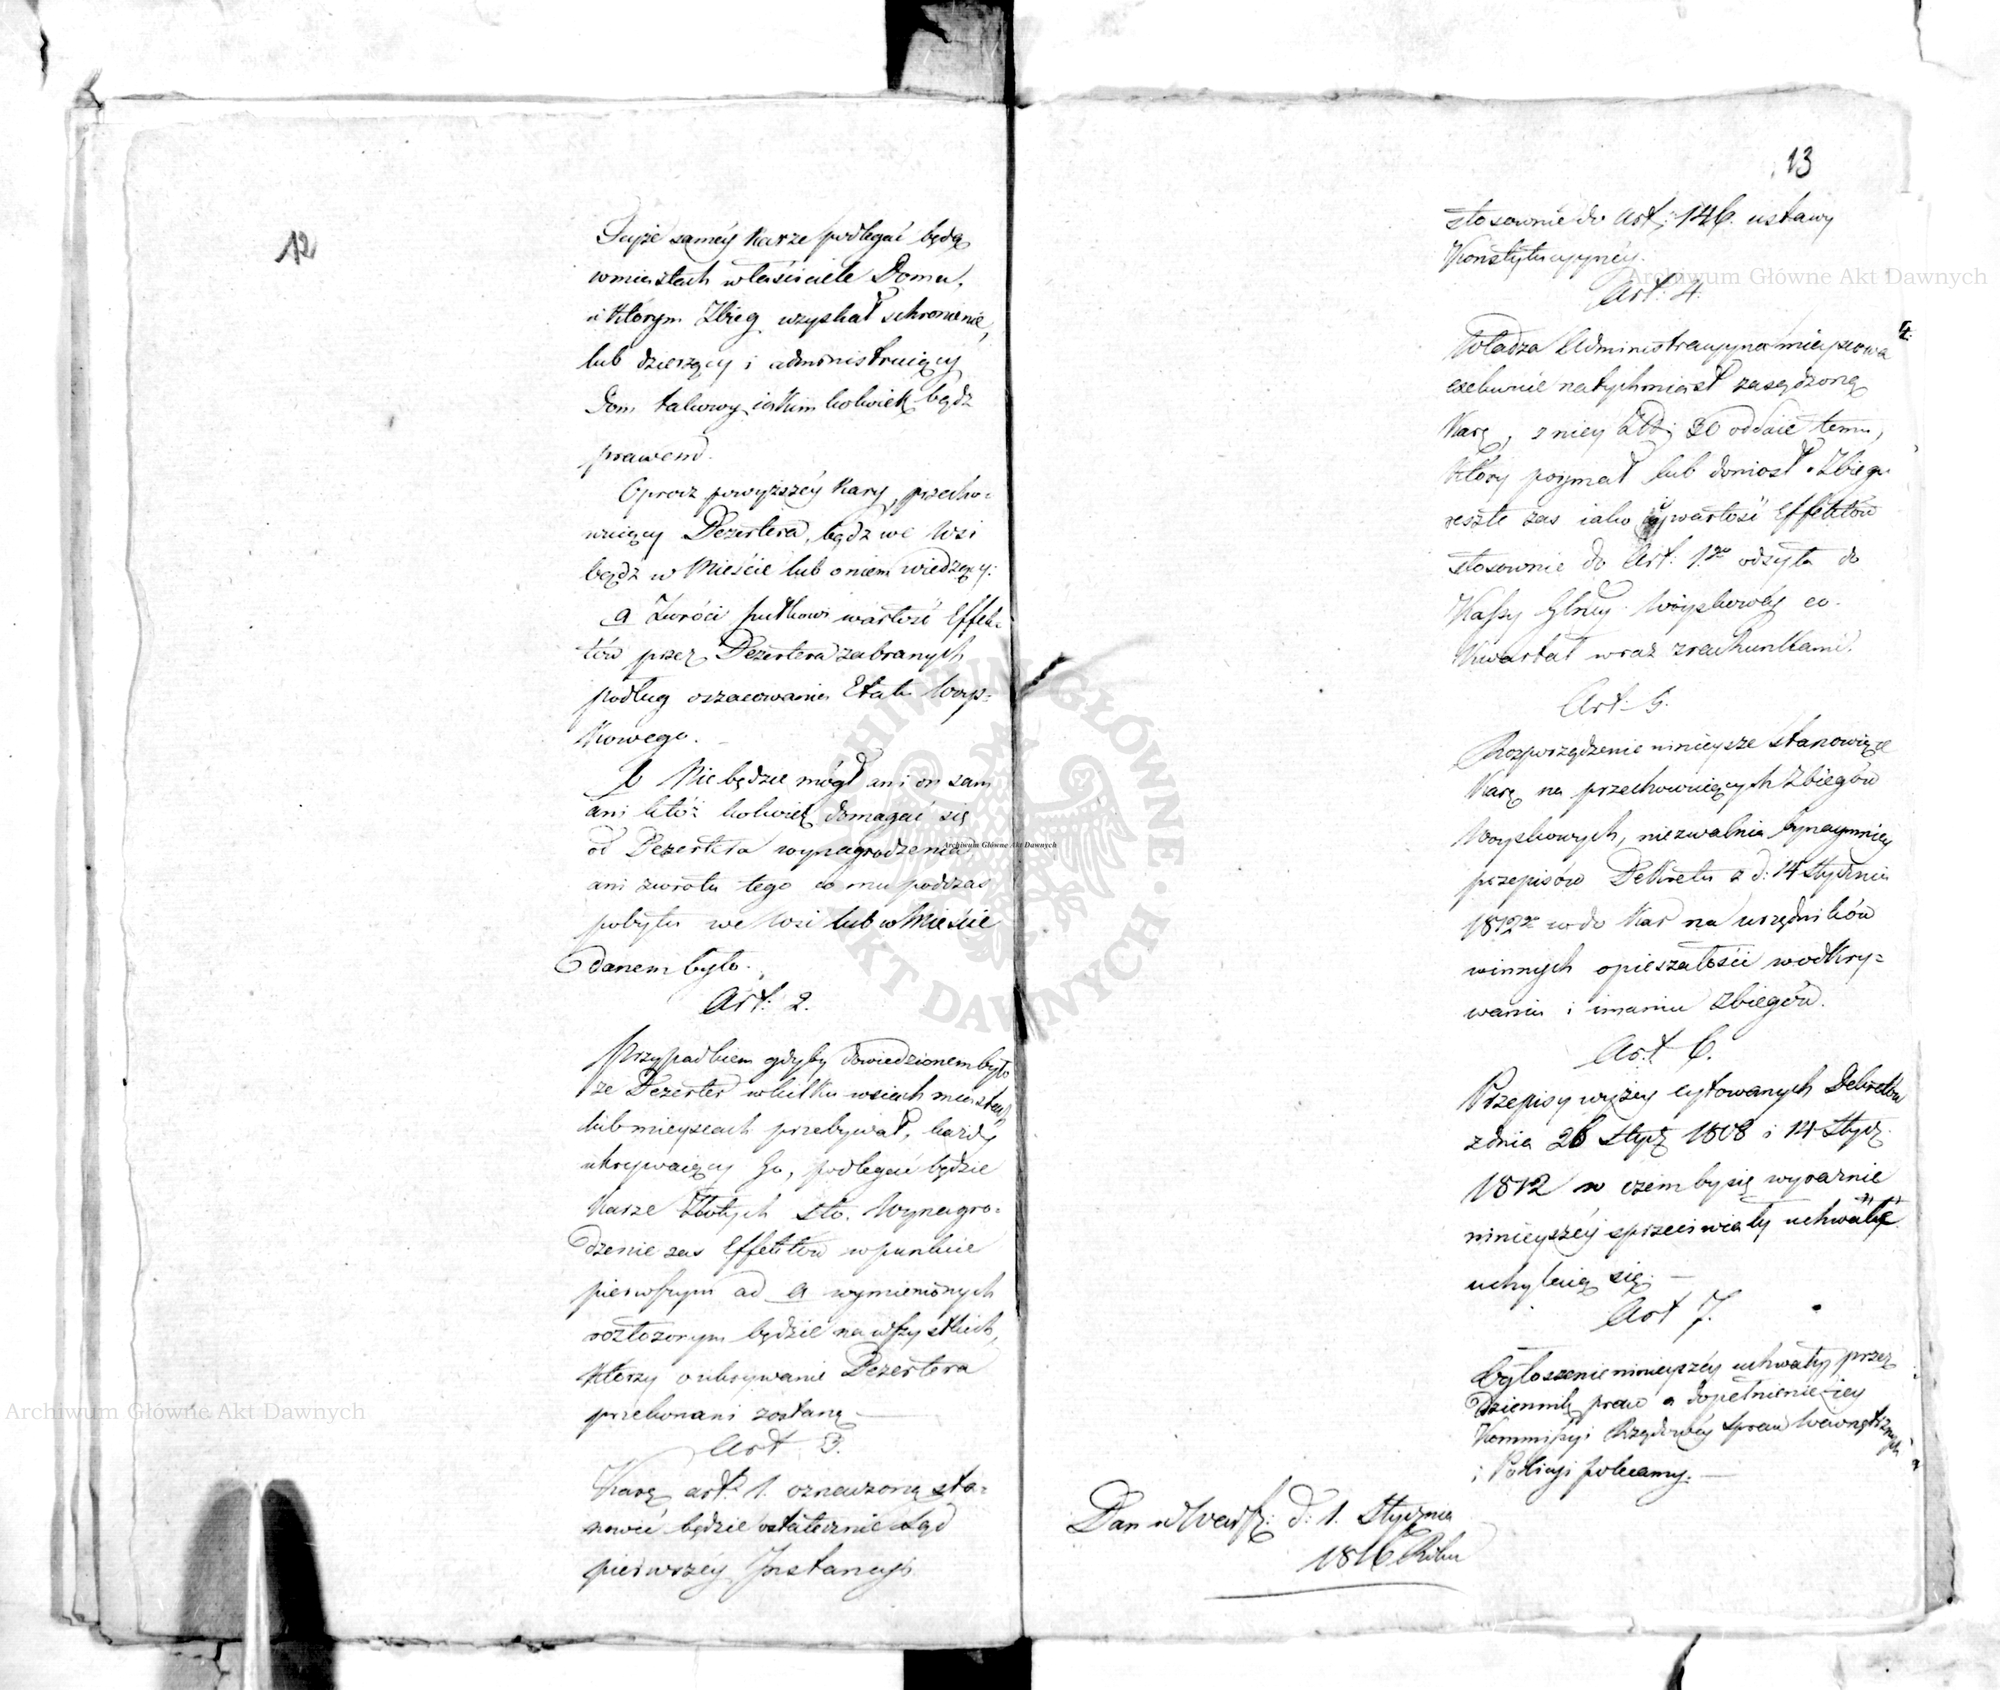 12
Teyże saméy karze podlegać będą
w miastach właściciele Domu,
w którym Zbieg uzyskał schronienie,
lub dzierzący i administruiący
Dom takowy iakimkolwiek bądz
prawem.
Oprocz powyższéy kary, przecho=
wuiący Dezertera, bądz we wsi
bądz w Mieście lub o niem wiedzący:
a Zwróci pułkowi wartość Effek=
tów przez Dezertera zabranych
podług oszacowania Etatu Woys=
kowego.
b Nie będzie mógł ani on sam
ani ktoż kolwiek domagać się
od Dezertera wynagrodzenia
ani zwrotu tego co mu podczas
pobytu we wsi lub w Mieście
danem było.
Art: 2.
Przypadkiem gdyby dowiedzionem było
ze Dezerter w kilku wsiach miastach
lub mieyscach przebywał, każdy
ukrywaiący Go, podlegać będzie
karze Złotych sto. Wynagro=
dzenie zas Effektów w punkcie
pierwszym ad a wymienionych
rozłozonym będzie na wszystkich,
którzy o ukrywanie Dezertera
przekonani zostaną
Art 3.
Karę art: 1. oznaczoną sta=
nowić będzie ostatecznie Sąd
pierwszéy Instancyi
13
stosownie do Art: 146. ustawy
Konstytucyynéy.
Art: 4.
Władza Administracyyna mieyscowa
exekwuie natychmiast zasądzoną
Karę, z niey 30 oddaie temu,
który poymał lub doniosł Zbiega
resztę zas iako i wartość Effektów
stosownie do Art: 1go odsyła do
Kassy Głney Woyskowéy co
Kwartał wraz z rachunkami.
Art: 5.
Rozporządzenie ninieysze stanowiące
Karę na przechowuiących Zbiegów
Woyskowych, niezwalnia bynaymniey
przepisów Dekretu z d: 14 Stycznia
1812 co do Kar na urzędników
winnych opieszałości w odkry=
waniu i imaniu Zbiegów.
Art 6.
Przepisy wyżey cytowanych Dekretów
z dnia 26 Stycz 1808 i 14 Stycz.
1812 w czemby się wyraznie
ninieyszéy sprzeciwiały uchwale
uchylaią się.
Art 7.
Ogłoszenie ninieyszéy uchwały przez
Dziennik praw a dopełnienie iey
Kommissyi Rządowéy Spraw Wewnętrznych
i Policyi polecamy.
Dan w Warsz: d: 1. Stycznia
1816 Roku
Archiwum Główne Akt Dawnych
Archiwum Główne Akt Dawnych
Archiwum Główne Akt Dawnych
ARCHIWUM GŁÓWNE AKT DAWNYCH